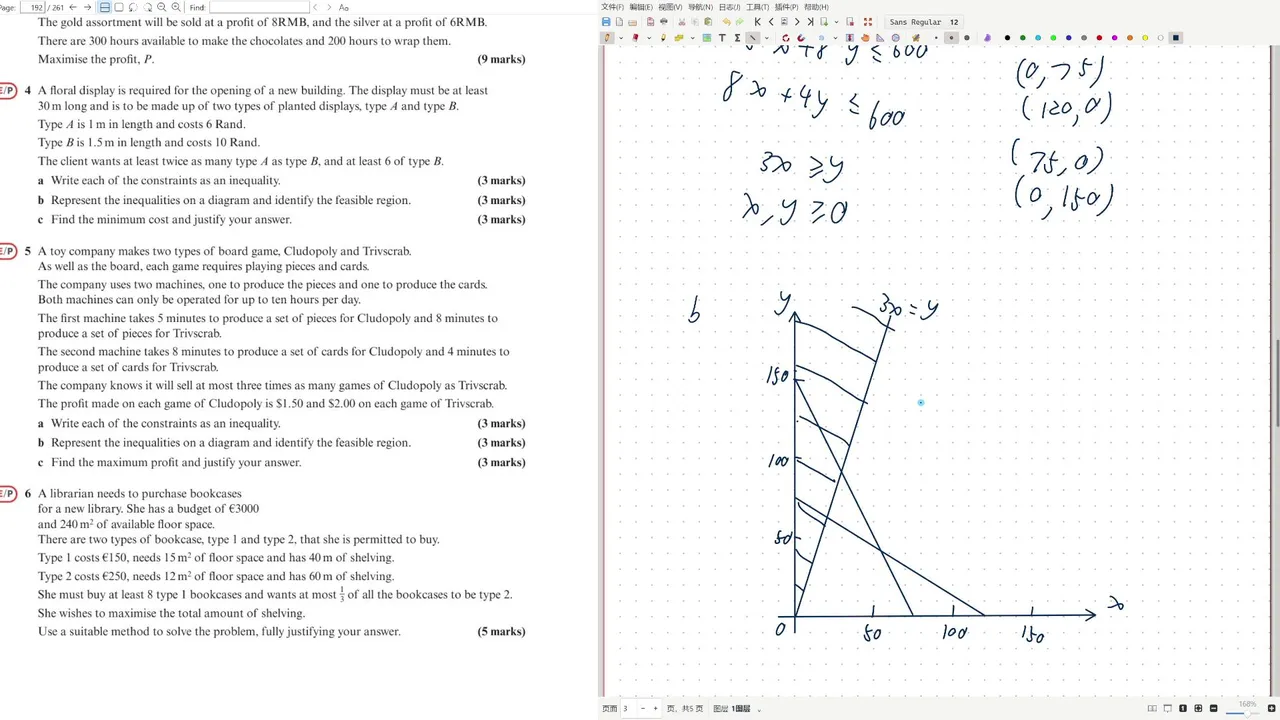 Page: 192 / 261 Find: Aa
The gold assortment will be sold at a profit of 8RMB, and the silver at a profit of 6RMB.
There are 300 hours available to make the chocolates and 200 hours to wrap them.
Maximise the profit, P. (9 marks)
E/P 4 A floral display is required for the opening of a new building. The display must be at least
30 m long and is to be made up of two types of planted displays, type A and type B.
Type A is 1 m in length and costs 6 Rand.
Type B is 1.5 m in length and costs 10 Rand.
The client wants at least twice as many type A as type B, and at least 6 of type B.
a Write each of the constraints as an inequality. (3 marks)
b Represent the inequalities on a diagram and identify the feasible region. (3 marks)
c Find the minimum cost and justify your answer. (3 marks)
E/P 5 A toy company makes two types of board game, Cludopoly and Trivscrab.
As well as the board, each game requires playing pieces and cards.
The company uses two machines, one to produce the pieces and one to produce the cards.
Both machines can only be operated for up to ten hours per day.
The first machine takes 5 minutes to produce a set of pieces for Cludopoly and 8 minutes to
produce a set of pieces for Trivscrab.
The second machine takes 8 minutes to produce a set of cards for Cludopoly and 4 minutes to
produce a set of cards for Trivscrab.
The company knows it will sell at most three times as many games of Cludopoly as Trivscrab.
The profit made on each game of Cludopoly is $1.50 and $2.00 on each game of Trivscrab.
a Write each of the constraints as an inequality. (3 marks)
b Represent the inequalities on a diagram and identify the feasible region. (3 marks)
c Find the maximum profit and justify your answer. (3 marks)
E/P 6 A librarian needs to purchase bookcases
for a new library. She has a budget of €3000
and 240 m² of available floor space.
There are two types of bookcase, type 1 and type 2, that she is permitted to buy.
Type 1 costs €150, needs 15 m² of floor space and has 40 m of shelving.
Type 2 costs €250, needs 12 m² of floor space and has 60 m of shelving.
She must buy at least 8 type 1 bookcases and wants at most 1/3 of all the bookcases to be type 2.
She wishes to maximise the total amount of shelving.
Use a suitable method to solve the problem, fully justifying your answer. (5 marks)
文件(F) 编辑(E) 视图(V) 导航(N) 日志(J) 工具(T) 插件(P) 帮助(H)
Sans Regular 12
x + 8 y ≤ 600
8x + 4y ≤ 600
3x ≥ y
x, y ≥ 0
(0, 75)
(120, 0)
(75, 0)
(0, 150)
b
y
3x = y
150
100
50
0
50
100
150
x
页面 3 页, 共5 页 图层 1图层
168%